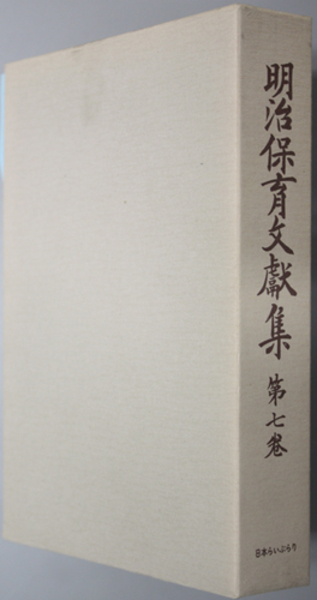 明治保育文獻集 第七卷
日本らいぶらり